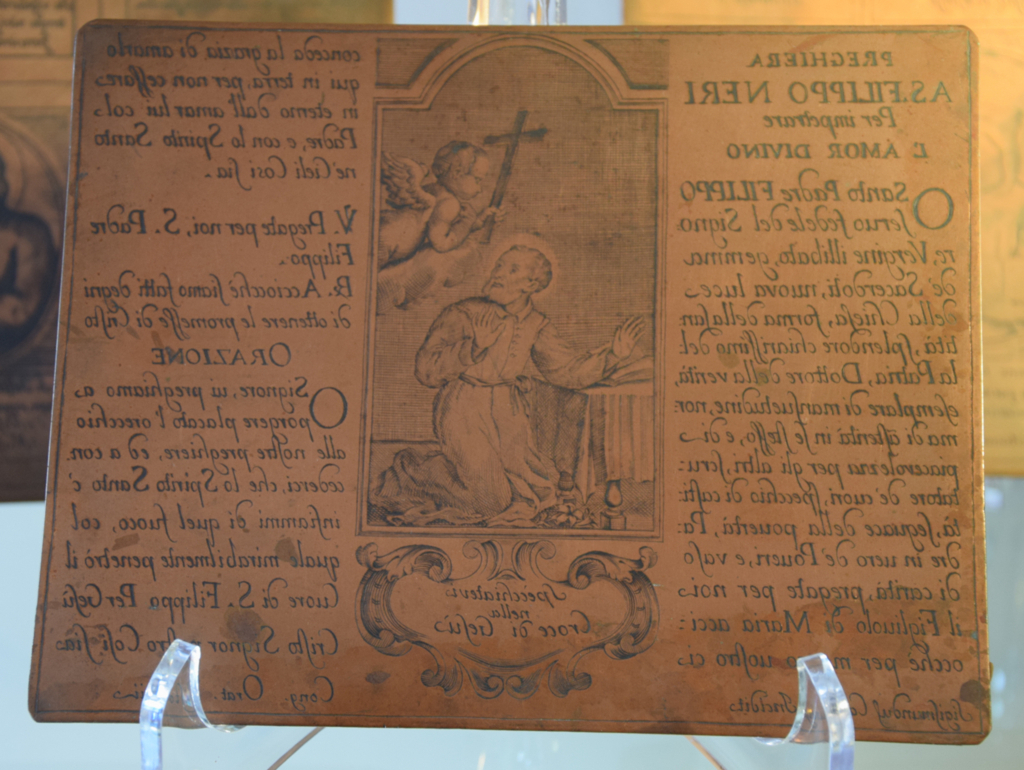 PREGHIERA
A S. FILIPPO NERI
Per impetrare
L' AMOR DIVINO
O Santo Padre FILIPPO
ſeruo fedele del Signo
re, Vergine illibato, gemma
de' Sacerdoti, nuova luce
della Chieſa, forma della ſan
tità, ſplendore chiariſſimo del
la Patria, Dottore della verità
eſemplare di manſuetudine, nor
ma di aſterità in ſe ſteſſo, e di
piacevolezza per gli altri, ſcru:
tatore de' cuori, ſpecchio di caſti:
tà, ſeguace della pouertà, Pa:
dre in uero de' Poueri, e vaſo
di carità, pregate per noi
il Figliuolo di Maria acci:
occhè per uoſtro ci
Sigiſmundus Incidit
Specchiatevi
nella
Croce di Gesù
conceda la grazia di amarlo
qui in terra, per non ceſſare
in eterno dall' amar lui col
Padre, e con lo Spirito Santo
ne' Cieli Così ſia.
V. Pregate per noi, S. Padre
Filippo.
R. Acciocchè ſiamo fatti degni
di ottenere le promeſſe di Criſto
ORAZIONE
O Signore, ui preghiamo a
porgere placato l' orecchio
alle noſtre preghiere, ed a con
cederci, che lo Spirito Santo c'
infiammi di quel fuoco, col
quale mirabilmente penetrò il
Cuore di S. Filippo Per Gesù
Criſto Signor Coſì ſia
Cong. Orat.